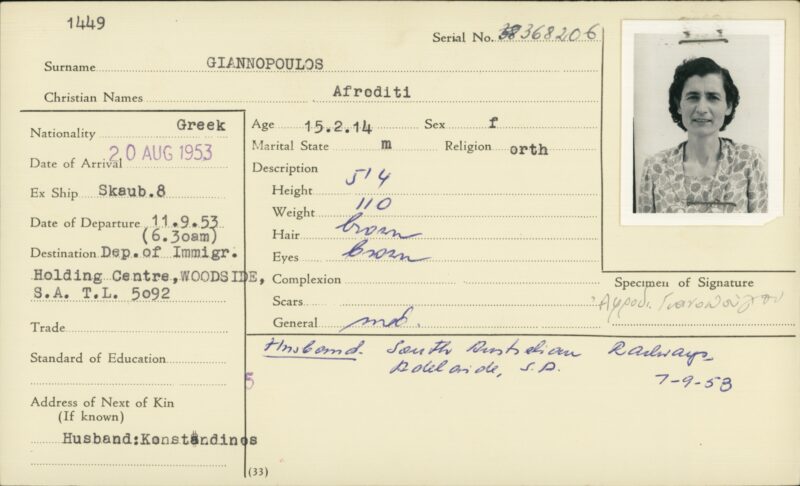 1449
Serial No. 38368206
Surname GIANNOPOULOS
Christian Names Afroditi
Nationality Greek
Date of Arrival 20 AUG 1953
Ex Ship Skaub.8
Date of Departure 11.9.53
(6.30am)
Destination Dep.of Immigr.
Holding Centre,WOODSIDE,
S.A. T.L. 5092
Trade
Standard of Education
Address of Next of Kin
(If known)
Husband:Konstandinos
Age 15.2.14 Sex f
Marital State m Religion orth
Description
Height 5'4
Weight 110
Hair brown
Eyes brown
Complexion
Scars
General
Specimen of Signature
Husband. South Australian Railways
Adelaide, S.A.
7-9-53
5
(33)